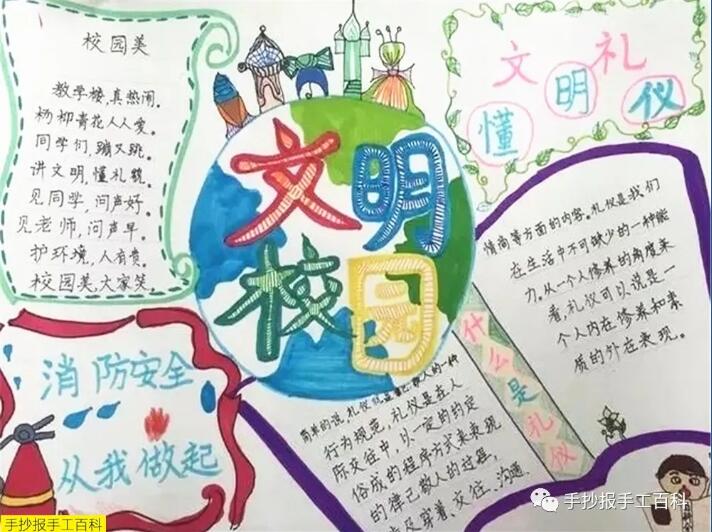 校园美
教学楼,真热闹。
杨柳青花人人爱。
同学们,蹦又跳。
讲文明,懂礼貌。
见同学,问声好。
见老师,问声早。
护环境,人有责。
校园美,大家笑。
文明校园
文明礼仪
懂
消防安全
从我做起
什么是礼仪
简单的说,礼仪就是
人的一种
行为规范,礼仪是在人
际交往中,以一定的约定
俗成的程序方式来表现
的律己敬人的过程,
穿着、交往、沟通、
情商等方面的内容。礼仪是我们
在生活中不可缺少的一种能
力。从一个人修养的角度来
看,礼仪可以说是一
个人内在修养和素
质的外在表现。
手抄报手工百科
手抄报手工百科